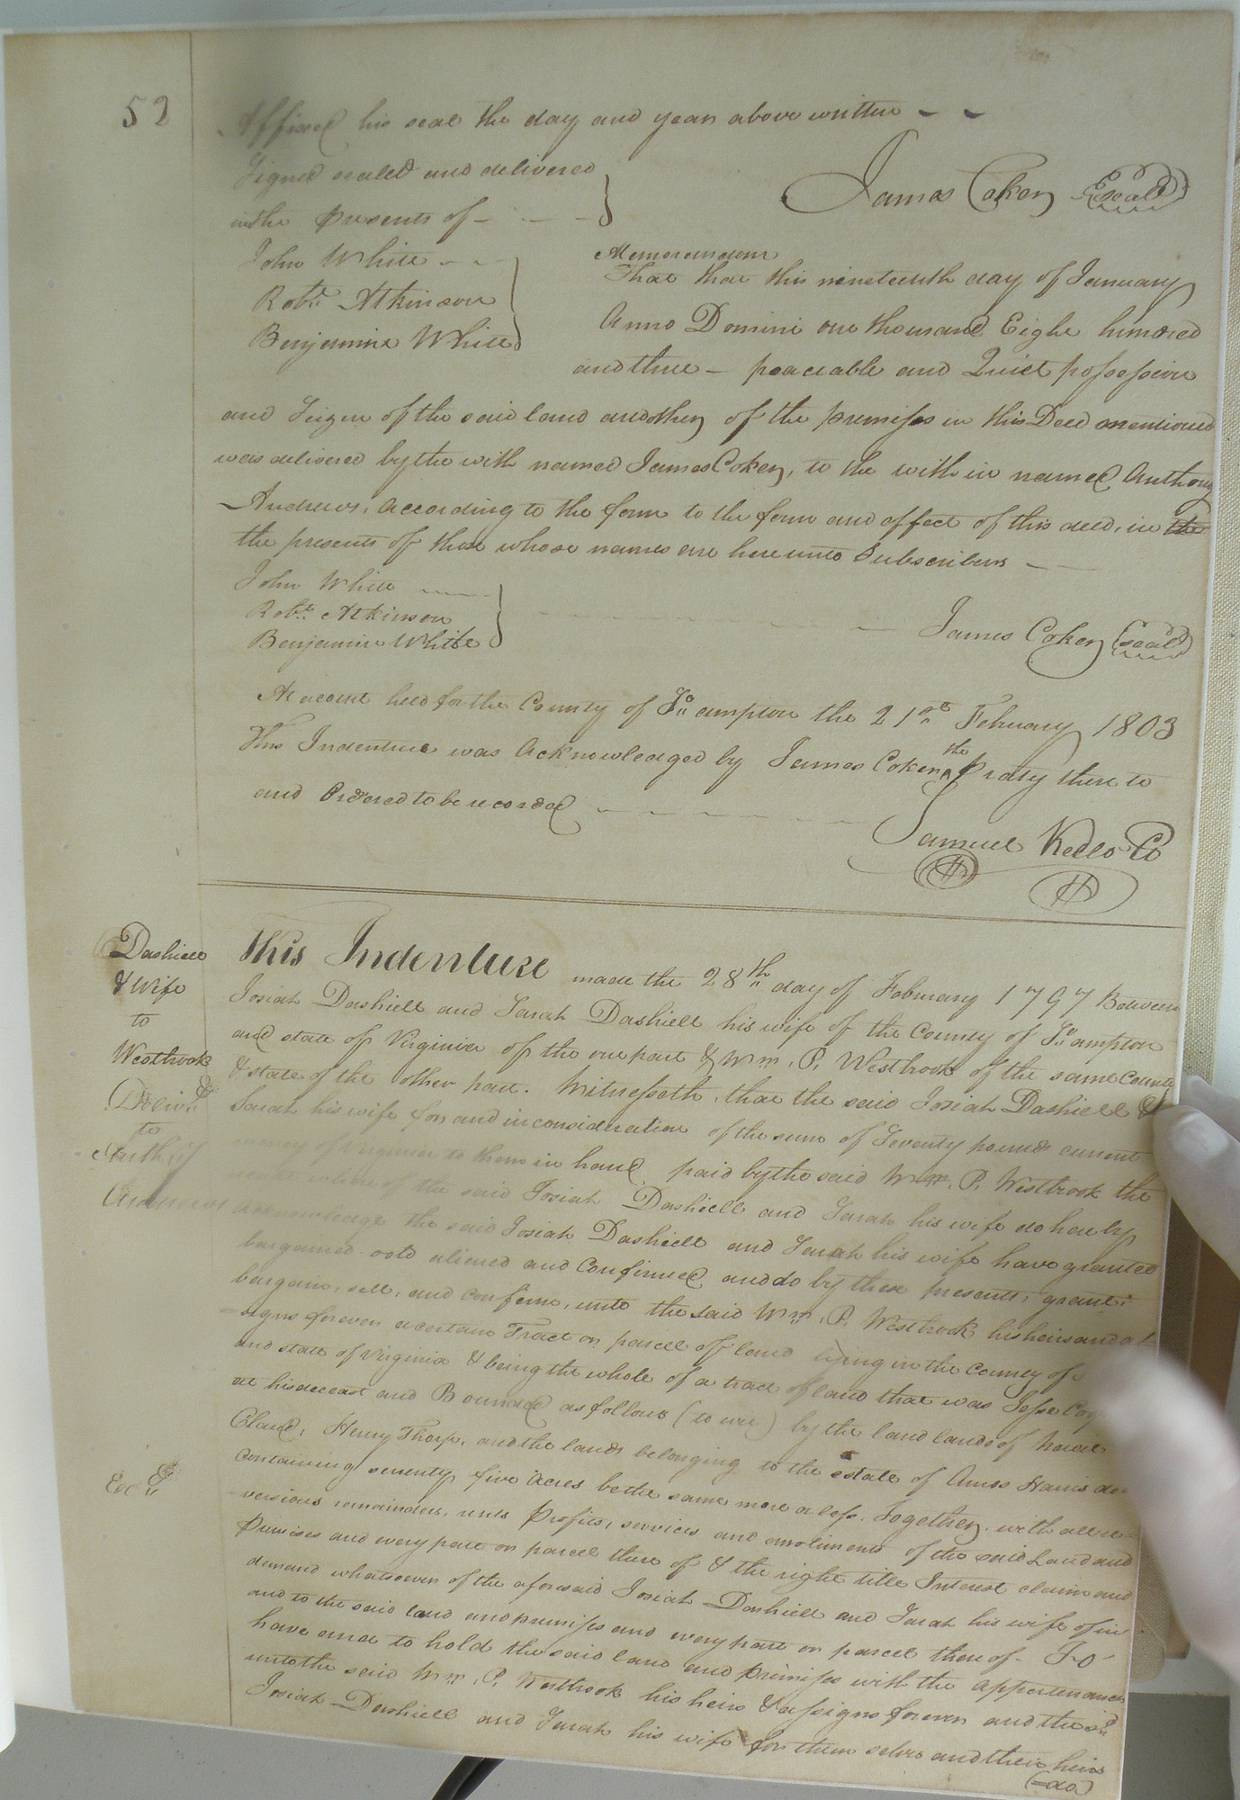 52
Affixed his seal the day and year above written
Signed sealed and delivered
in the Presents of
James Coken (Seal)
John White
Robt. Atkinson
Benjamin White
Memorandom
That that this nineteenth day of January
Anno Domini one thousand Eight hundred
and three - peaceable and Quiet possession
and Seizen of the said land and other of the premises in this Deed mentioned
was delivered by the with named James Coken, to the with in named Anthony
Andrews, according to the form to the form and effect of this deed, in the
the presents of those whose names are here unto Subscribers
John White
Robt. Atkinson
Benjamin White
James Coken (Seal)
At a court held for the County of So. ampton the 21st February 1803
This Indenture was Acknowledged by James Coken the Praty there to
and Ordered to be recorded
Samuel Kello C
Dashiell
& Wife
to
Westbrook
Delivd.
to
Anthy
Andrews
Exd.
This Indenture made the 28th day of February 1797 Between
Josiah Dashiell and Sarah Dashiell his wife of the County of So. ampton
and state of Virginia of the one part & Wm. P. Westbrook of the same County
& state of the other part. Witnesseth, that the said Josiah Dashiell &
Sarah his wife for and in consideration of the sum of Seventy pounds current
money of Virginia to them in hand paid by the said Wm. P. Westbrook the
of the said Josiah Dashiell and Sarah his wife do hereby
acknowledge the said Josiah Dashiell and Sarah his wife have granted
bargained sold aliened and Confirmed and do by these presents, grant
bargain, sell, and confirm, unto the said Wm. P. Westbrook his heirs and as
signs forever a certain Tract or parcel of land lying in the County of
and state of Virginia & being the whole of a tract of land that was Jesse
at his deceast and Bounded as follows (to wit) by the land lands of
Claud, Henry Thorp, and the lands belonging to the estate of Amos Harris
Containing seventy five acres be the same more or less. Together, with all re
versions remainders, rents Profits, services and emoliments of the said Land and
Premises and every part or parcel there of & the right title Interest claim and
demand whatsoever of the aforesaid Josiah Dashiell and Sarah his wife of in
and to the said land and premises and every part or parcel there of - To
have and to hold the said land and premises with the appertenances
unto the said Wm. P. Westbrook his heirs & assigns forever and the sd.
Josiah Dashiell and Sarah his wife for them selves and their heirs